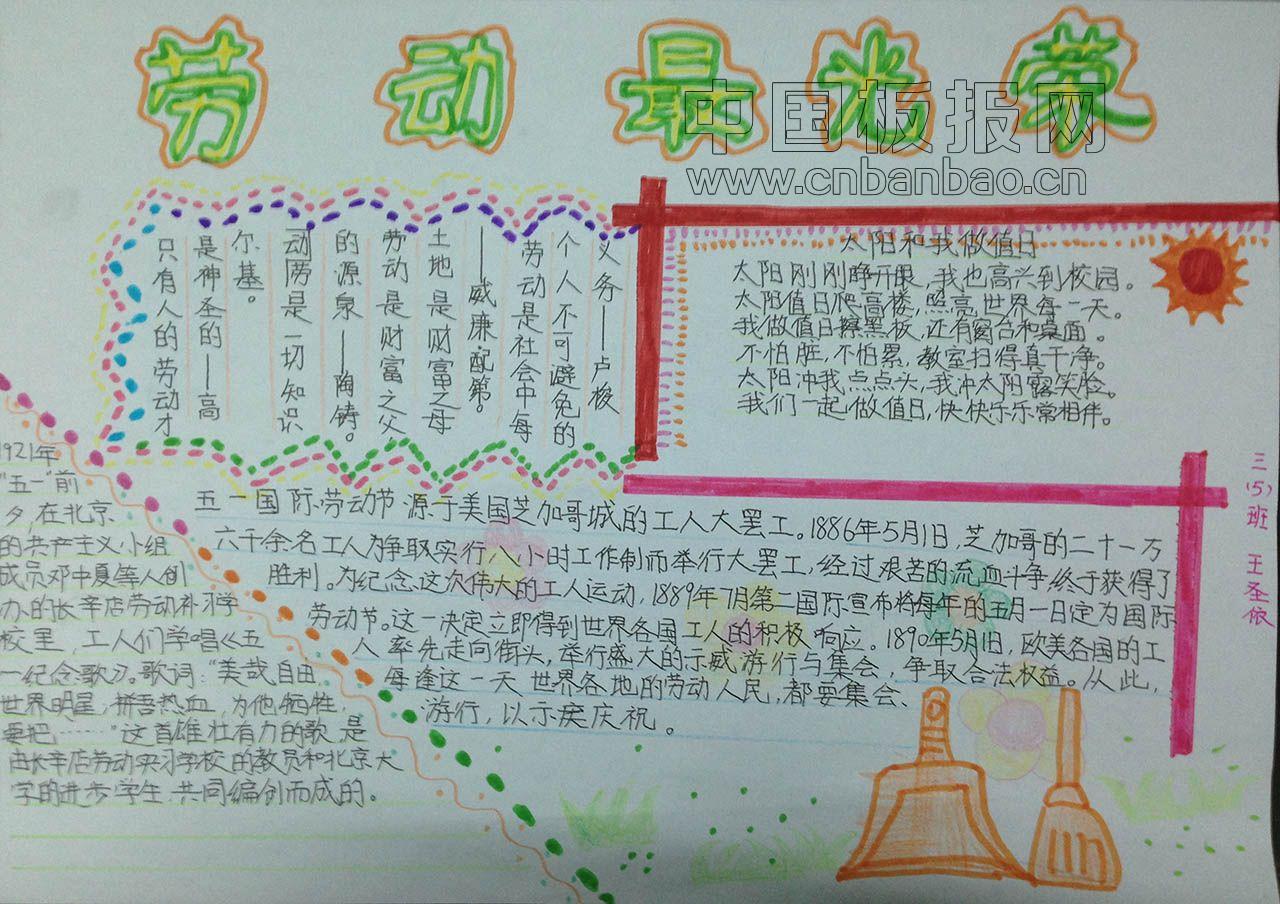 劳动最光荣
中国板报网
www.cnbanbao.cn
只有人的劳动才
是神圣的——高
尔基。
动劳是一切知识
的源泉——陶铸。
劳动是财富之父
土地是财富之母
——威廉配第。
劳动是社会中每
个人不可避免的
义务——卢梭
太阳和我做值日
太阳刚刚睁开眼,我也高兴到校园。
太阳值日爬高楼,照亮世界每一天。
我做值日擦黑板,还有窗台和桌面。
不怕脏,不怕累,教室扫得真干净。
太阳冲我点点头,我冲太阳露笑脸。
我们一起做值日,快快乐乐常相伴。
三(5)班 王圣依
五一国际劳动节源于美国芝加哥城的工人大罢工。1886年5月1日,芝加哥的二十一万
六千余名工人为争取实行八小时工作制而举行大罢工,经过艰苦的流血斗争,终于获得了
胜利。为纪念这次伟大的工人运动,1889年7月第二国际宣布将每年的五月一日定为国际
劳动节。这一决定立即得到世界各国工人的积极响应。1890年5月1日,欧美各国的工
人率先走向街头,举行盛大的示威游行与集会,争取合法权益。从此,
每逢这一天世界各地的劳动人民,都要集会、
游行,以示庆祝。
1921年
“五一”前
夕,在北京
的共产主义小组
成员邓中夏等人创
办的长辛店劳动补习学
校里,工人们学唱《五
一纪念歌》。歌词:“美哉自由,
世界明星,拼吾热血,为他牺牲,
要把……”这首雄壮有力的歌,是
由长辛店劳动实习学校的教员和北京大
学的进步学生,共同编创而成的。